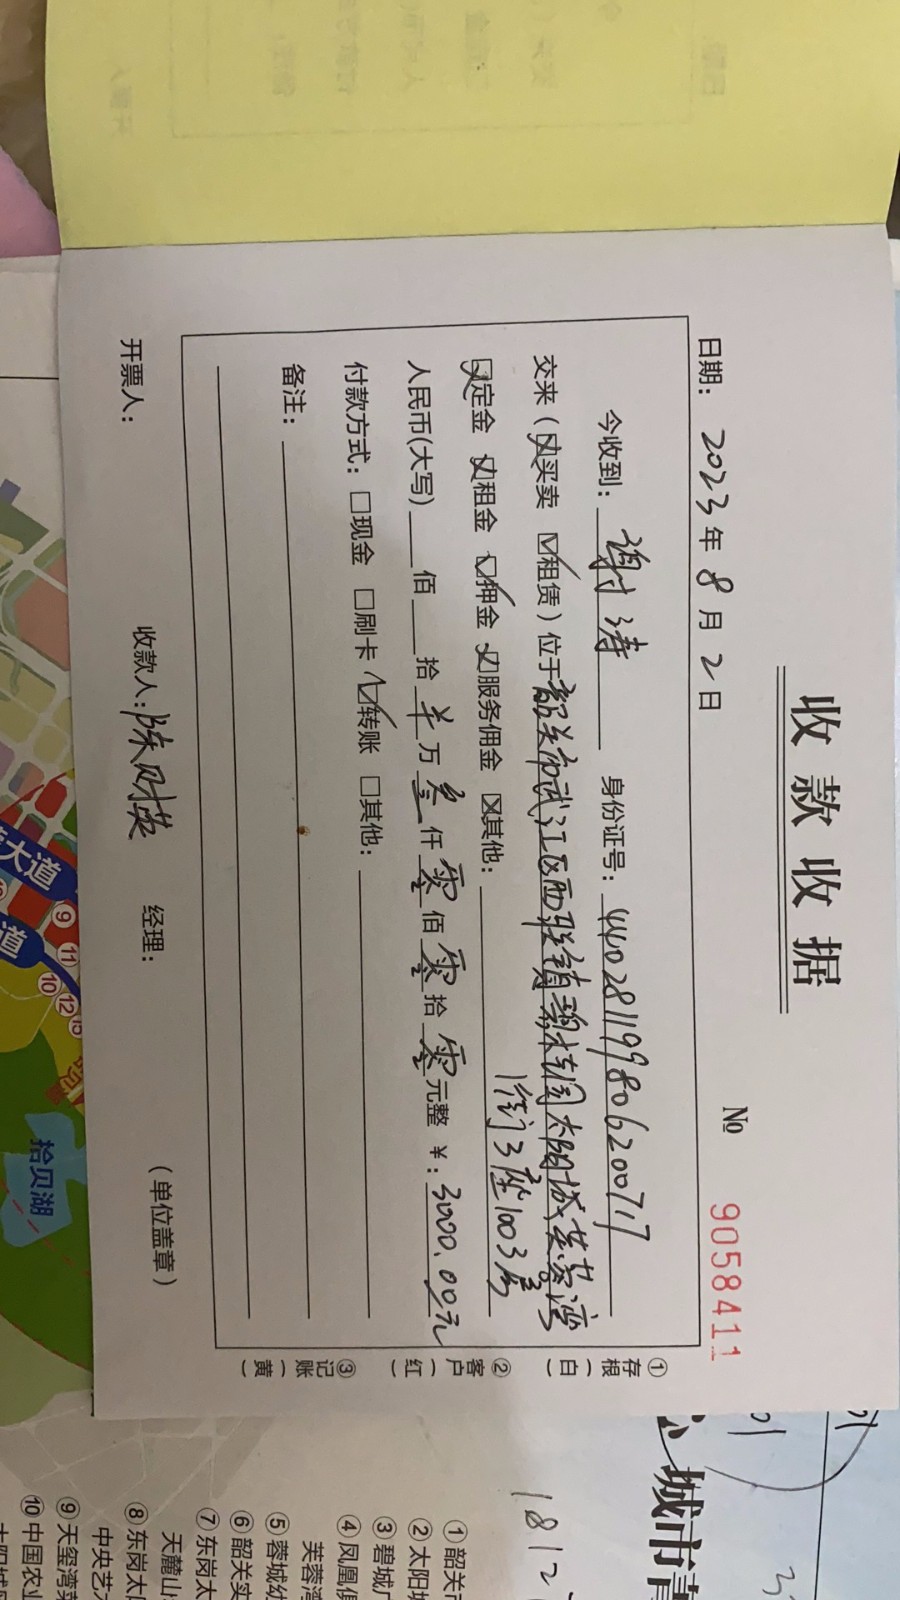 收款收据
№ 9058411
日期：2023年8月2日
今收到：谢涛 身份证号：440281199806200717
交来（☒买卖 ☑租赁）位于韶关市武江区西联镇碧桂园太阳城芙蓉湾
1街3座1003房
☒定金 ☒租金 ☑押金 ☒服务佣金 ☒其他：
人民币(大写) 佰 拾 ¥万叁仟零佰零拾零元整 ¥：3000.00元
付款方式：☐现金 ☐刷卡 ☑转账 ☐其他：
备注：
开票人： 收款人：陈财英 经理： （单位盖章）
①存根（白）
②客户（红）
③记账（黄）
城市
1812
①韶关市
②太阳城
③碧城广
④凤凰
芙蓉湾
⑤蓉城幼
⑥韶关实
⑦东岗太
天麓山
⑧东岗太
中央艺
⑨天玺湾
⑩中国农业
大道
道
⑨
⑪
⑩
⑫
⑮
拾贝湖